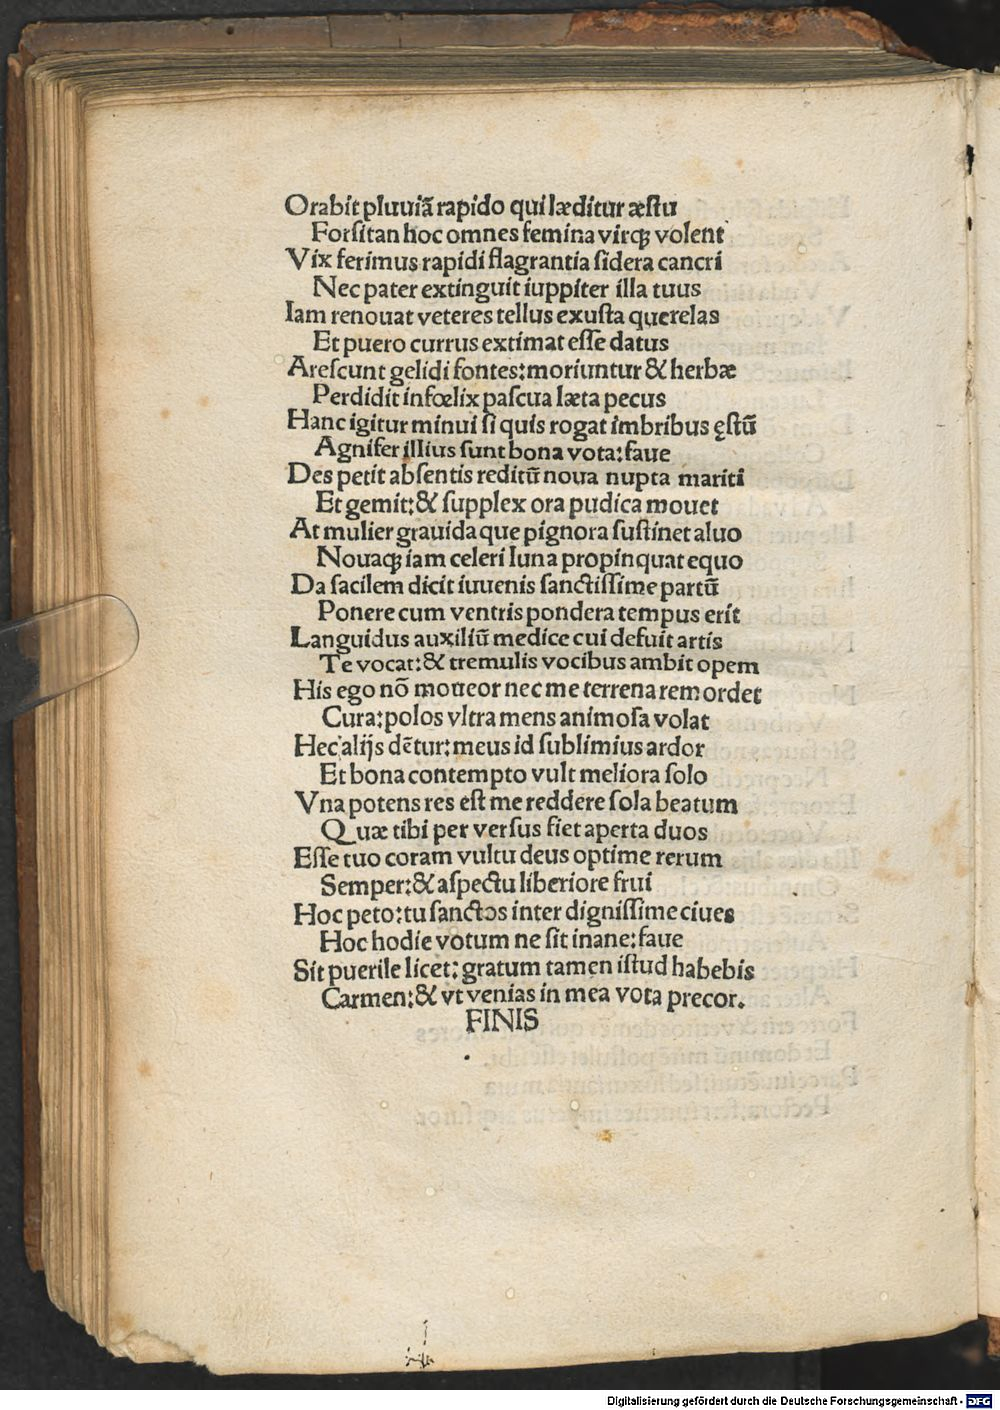 Orabit pluuiā rapido qui læditur æstu
Forſitan hoc omnes femina virqꝫ volent
Vix ferimus rapidi flagrantia ſidera cancri
Nec pater extinguit iuppiter illa tuus
Iam renouat veteres tellus exuſta querelas
Et puero currus extimat eſſe datus
Areſcunt gelidi fontes: moriuntur & herbæ
Perdidit infœlix paſcua læta pecus
Hanc igitur minui ſi quis rogat imbribus ęſtū
Agnifer illius ſunt bona vota: faue
Des petit abſentis reditū noua nupta mariti
Et gemit: & ſupplex ora pudica mouet
At mulier grauida que pignora ſuſtinet aluo
Nouaqꝫ iam celeri luna propinquat equo
Da facilem dicit iuuenis ſanctiſſime partū
Ponere cum ventris pondera tempus erit
Languidus auxiliū medice cui defuit artis
Te vocat: & tremulis vocibus ambit opem
His ego nō moueor nec me terrena remordet
Cura: polos vltra mens animoſa volat
Hec alijs dētur: meus id ſublimius ardor
Et bona contempto vult meliora ſolo
Vna potens res eſt me reddere ſola beatum
Quæ tibi per verſus fiet aperta duos
Eſſe tuo coram vultu deus optime rerum
Semper: & aſpectu liberiore frui
Hoc peto: tu ſanctos inter digniſſime ciues
Hoc hodie votum ne ſit inane: faue
Sit puerile licet: gratum tamen iſtud habebis
Carmen: & vt venias in mea vota precor.
FINIS
Digitalisierung gefördert durch die Deutsche Forschungsgemeinschaft - DFG